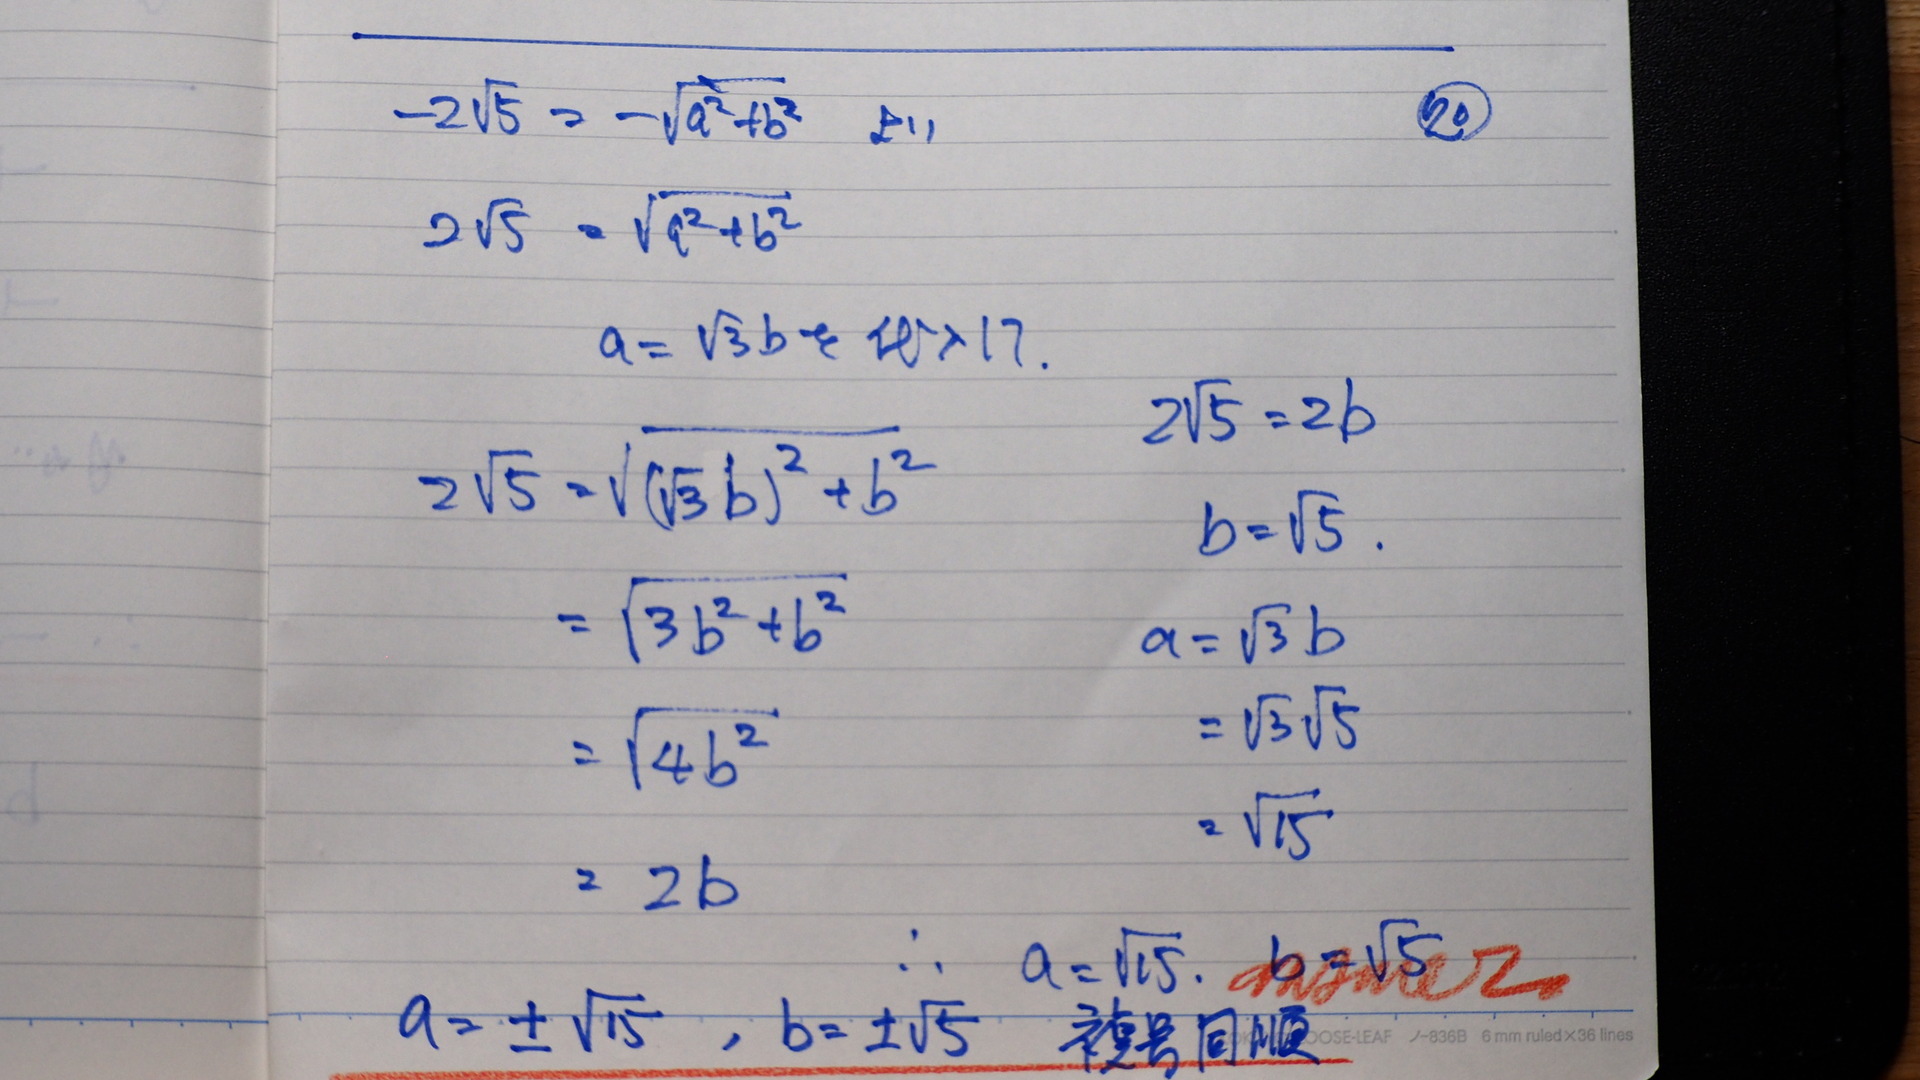 -2√5 = -√(a²+b²) より
20
2√5 = √(a²+b²)
a = √3b を代入して.
2√5 = √((√3b)²+b²)
= √(3b²+b²)
= √(4b²)
= 2b
2√5 = 2b
b = √5.
a = √3b
= √3√5
= √15
∴ a = √15. b = √5
answer
a = ±√15, b = ±√5 複号同順
LOOSE-LEAF ノ-836B 6 mm ruled×36 lines